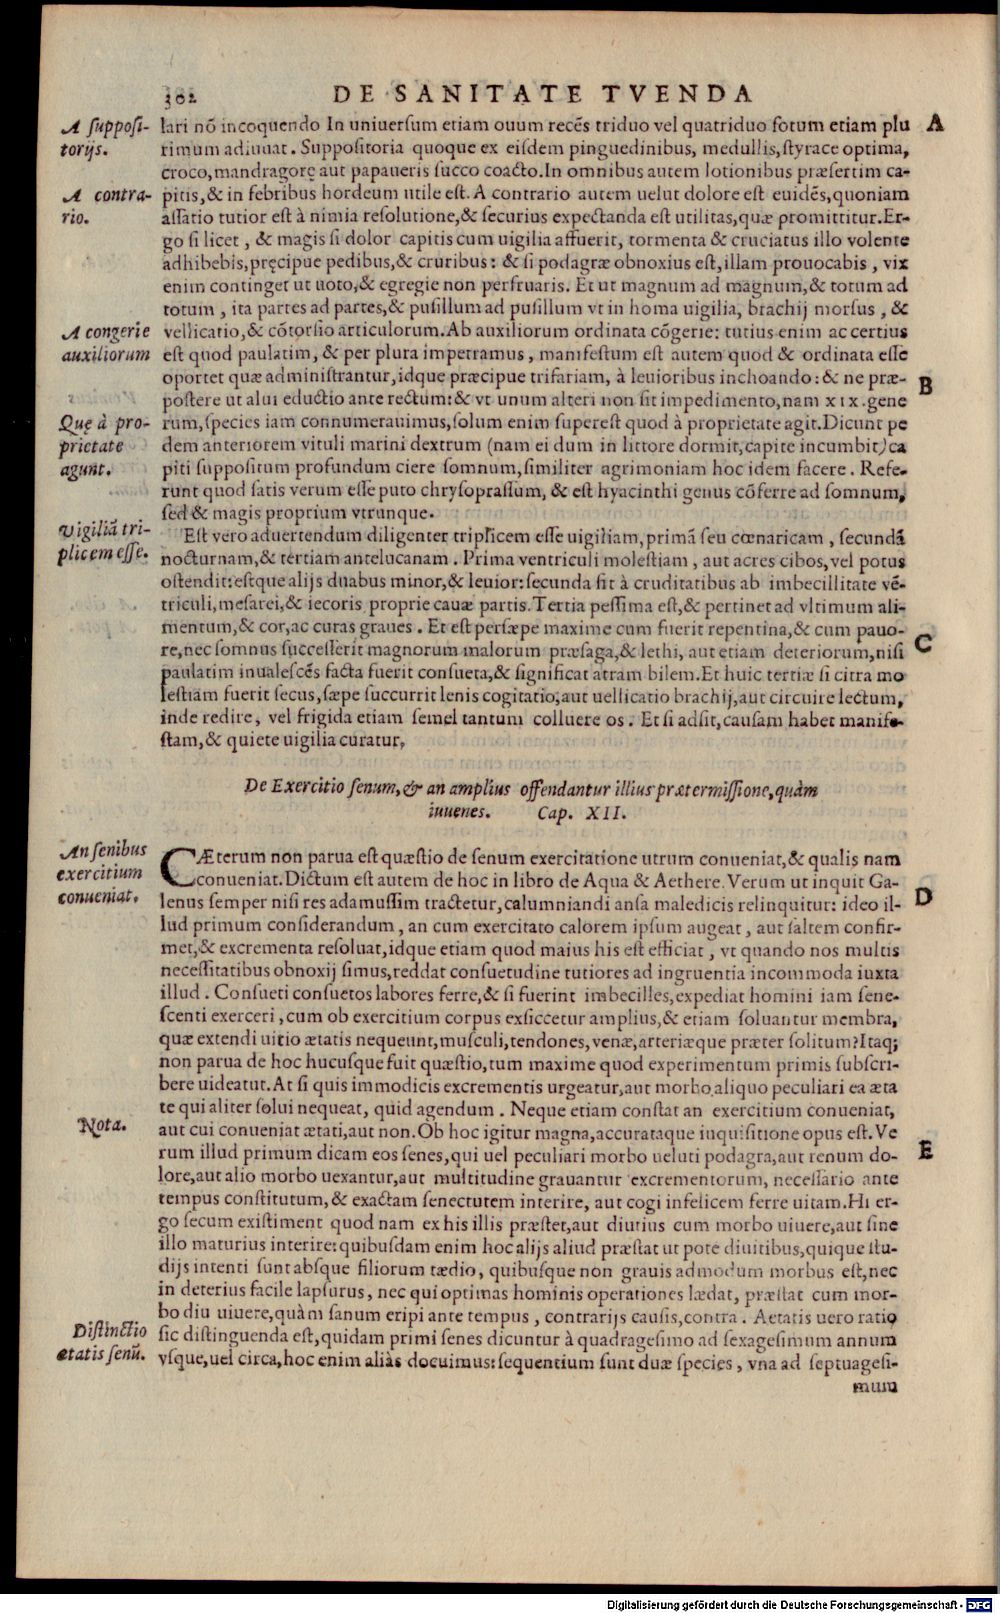 302 DE SANITATE TVENDA
A supposi-
torijs.
A contra-
rio.
A congerie
auxiliorum
Quę à pro-
prietate
agunt.
Vigiliā tri-
plicem esse.
lari nō incoquendo In uniuersum etiam ouum recēs triduo vel quatriduo fotum etiam plu
rimum adiuuat. Suppositoria quoque ex eisdem pinguedinibus, medullis, styrace optima,
croco, mandragorę aut papaueris succo coacto. In omnibus autem lotionibus præsertim ca-
pitis, & in febribus hordeum utile est. A contrario autem uelut dolore est euidēs, quoniam
assatio tutior est à nimia resolutione, & securius expectanda est utilitas, quæ promittitur. Er-
go si licet, & magis si dolor capitis cum uigilia affuerit, tormenta & cruciatus illo volente
adhibebis, pręcipue pedibus, & cruribus: & si podagræ obnoxius est, illam prouocabis, vix
enim continget ut uoto, & egregie non perfruaris. Et ut magnum ad magnum, & totum ad
totum, ita partes ad partes, & pusillum ad pusillum vt in homa uigilia, brachij morsus, &
vellicatio, & cōtorsio articulorum. Ab auxiliorum ordinata cōgerie: tutius enim ac certius
est quod paulatim, & per plura impetramus, manifestum est autem quod & ordinata esse
oportet quæ administrantur, idque præcipue trifariam, à leuioribus inchoando: & ne præ-
postere ut alui eductio ante rectum: & vt unum alteri non sit impedimento, nam XIX. gene
rum, species iam connumerauimus, solum enim superest quod à proprietate agit. Dicunt pe
dem anteriorem vituli marini dextrum (nam ei dum in littore dormit, capite incumbit) ca
piti suppositum profundum ciere somnum, similiter agrimoniam hoc idem facere. Refe-
runt quod satis verum esse puto chrysoprassum, & est hyacinthi genus cōferre ad somnum,
sed & magis proprium vtrunque.
Est vero aduertendum diligenter triplicem esse uigiliam, primā seu cœnaricam, secundā
nocturnam, & tertiam antelucanam. Prima ventriculi molestiam, aut acres cibos, vel potus
ostendit: estque alijs duabus minor, & leuior: secunda fit à cruditatibus ab imbecillitate vē-
triculi, mesarei, & iecoris proprie cauæ partis. Tertia pessima est, & pertinet ad vltimum ali-
mentum, & cor, ac curas graues. Et est persæpe maxime cum fuerit repentina, & cum pauo-
re, nec somnus successerit magnorum malorum præsaga, & lethi, aut etiam deteriorum, nisi
paulatim inualescēs facta fuerit consueta, & significat atram bilem. Et huic tertiæ si citra mo
lestiam fuerit secus, sæpe succurrit lenis cogitatio, aut uellicatio brachij, aut circuire lectum,
inde redire, vel frigida etiam semel tantum colluere os. Et si adsit, causam habet manife-
stam, & quiete uigilia curatur.
A
B
C
De Exercitio senum, & an amplius offendantur illius prætermissione, quàm
iuuenes. Cap. XII.
An senibus
exercitium
conueniat.
Nota.
Distinctio
ætatis senū.
CÆterum non parua est quæstio de senum exercitatione utrum conueniat, & qualis nam
conueniat. Dictum est autem de hoc in libro de Aqua & Aethere. Verum ut inquit Ga-
lenus semper nisi res adamussim tractetur, calumniandi ansa maledicis relinquitur: ideo il-
lud primum considerandum, an cum exercitato calorem ipsum augeat, aut saltem confir-
met, & excrementa resoluat, idque etiam quod maius his est efficiat, vt quando nos multis
necessitatibus obnoxij simus, reddat consuetudine tutiores ad ingruentia incommoda iuxta
illud. Consueti consuetos labores ferre, & si fuerint imbecilles, expediat homini iam sene-
scenti exerceri, cum ob exercitium corpus exsiccetur amplius, & etiam soluantur membra,
quæ extendi uitio ætatis nequeunt, musculi, tendones, venæ, arteriæque præter solitum? Itaq;
non parua de hoc hucusque fuit quæstio, tum maxime quod experimentum primis subscri-
bere uideatur. At si quis immodicis excrementis urgeatur, aut morbo aliquo peculiari ea æta
te qui aliter solui nequeat, quid agendum. Neque etiam constat an exercitium conueniat,
aut cui conueniat ætati, aut non. Ob hoc igitur magna, accurataque inquisitione opus est. Ve
rum illud primum dicam eos senes, qui uel peculiari morbo ueluti podagra, aut renum do-
lore, aut alio morbo uexantur, aut multitudine grauantur excrementorum, necessario ante
tempus constitutum, & exactam senectutem interire, aut cogi infelicem ferre uitam. Hi er-
go secum existiment quod nam ex his illis præstet, aut diutius cum morbo uiuere, aut sine
illo maturius interire: quibusdam enim hoc alijs aliud præstat ut pote diuitibus, quique stu-
dijs intenti sunt absque filiorum tædio, quibusque non grauis admodum morbus est, nec
in deterius facile lapsurus, nec qui optimas hominis operationes lædat, præstat cum mor-
bo diu uiuere, quàm sanum eripi ante tempus, contrarijs causis, contra. Aetatis uero ratio
sic distinguenda est, quidam primi senes dicuntur à quadragesimo ad sexagesimum annum
vsque, uel circa, hoc enim aliàs docuimus: sequentium sunt duæ species, vna ad septuagesi-
mum
D
E
Digitalisierung gefördert durch die Deutsche Forschungsgemeinschaft - DFG